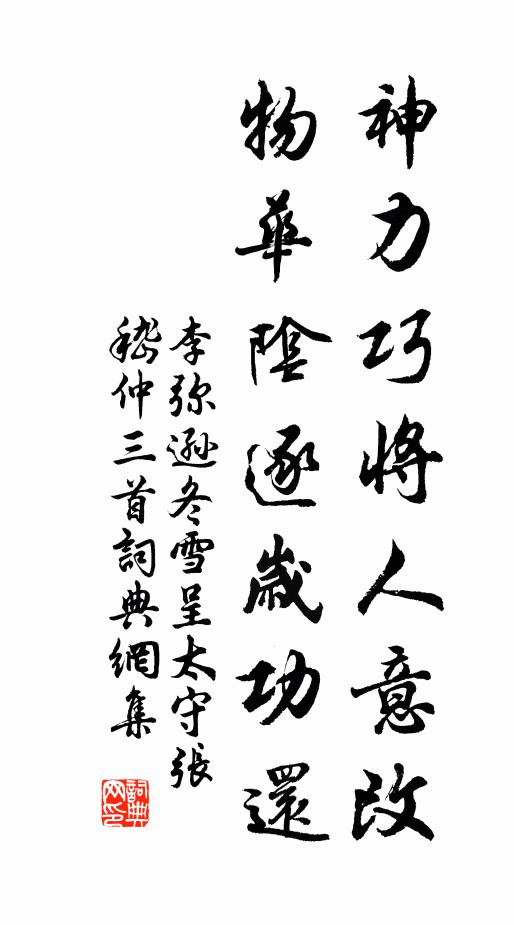 神力巧將人意改
物華陰逐歲功還
李弥遜冬雪呈太守張
嵇仲三首詞典網集
詞典網印